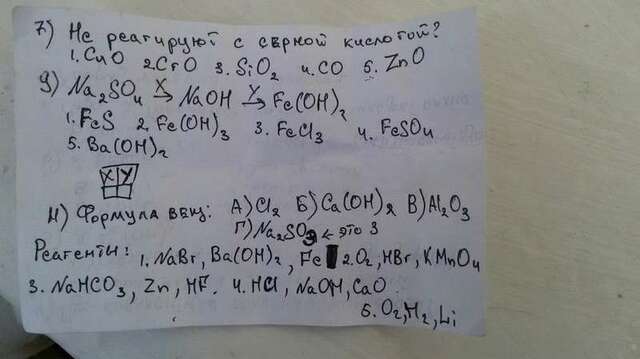 7) Не реагируют с серной кислотой?
1. CuO 2. CrO 3. SiO2 4. CO 5. ZnO
9) Na2SO4 X→ NaOH Y→ Fe(OH)2
1. FeS 2. Fe(OH)3 3. FeCl3 4. FeSO4
5. Ba(OH)2
X|Y
11) Формула вещ: А) Cl2 Б) Ca(OH)2 В) Al2O3
Г) Na2SO3 ← это 3
Реагенты: 1. NaBr, Ba(OH)2, Fe 2. O2, HBr, KMnO4
3. NaHCO3, Zn, HF. 4. HCl, NaOH, CaO
5. O2, H2, Li